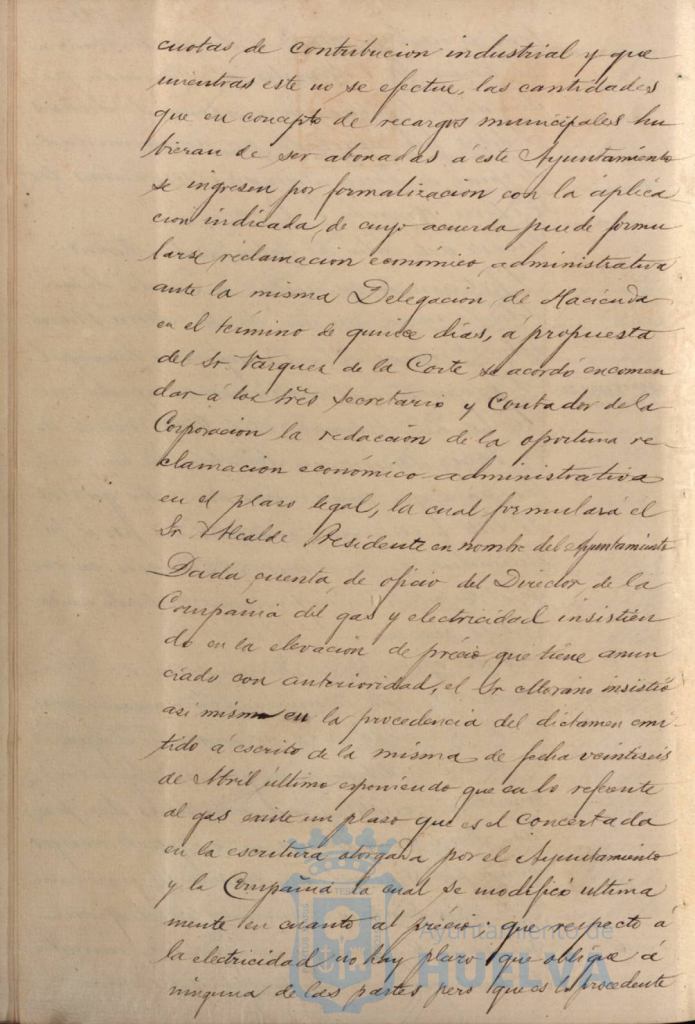 cuotas de contribucion industrial y que
mientras este no se efectue, las cantidades
que en concepto de recargos municipales hu
bieran de ser abonadas á este Ayuntamiento
se ingresen por formalizacion con la aplica
cion indicada, de cuyo acuerdo puede formu
larse reclamacion económico administrativa
ante la misma Delegacion de Hacienda
en el término de quince dias, á propuesta
del Sr. Vazquez de la Corte se acordó encomen
dar á los Sres Secretario y Contador de la
Corporacion la redaccion de la oportuna re-
clamacion económico-administrativa
en el plazo legal, la cual formulará el
Sr Alcalde Presidente en nombre del Ayuntamiento
Dada cuenta de oficio del Director de la
Compañia del gas y electricidad insistien
do en la elevacion de precio que tiene anun
ciado con anterioridad, el Sr Morano insistió
asi mismo en la procedencia del dictamen emi
tido á escrito de la misma de fecha veintiseis
de Abril último exponiendo que en lo referente
al gas existe un plazo que es el concertado
en la escritura otorgada por el Ayuntamiento
y la Compañia la cual se modificó ultima
mente en cuanto al précio: que respecto á
la electricidad no hay plazo que obligue á
ninguna de las partes pero que es lo procedente
Ayuntamiento de
HUELVA